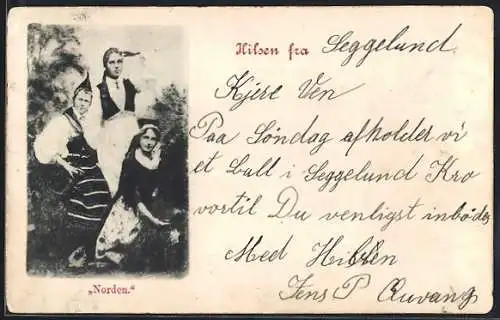 Hilsen fra Seggelund
Kjere Ven
Paa Söndag afholder vi
et Ball i Seggelund Kro
vortil Du venligst inbödes
Med Hilsen
Jens P
„Norden.“